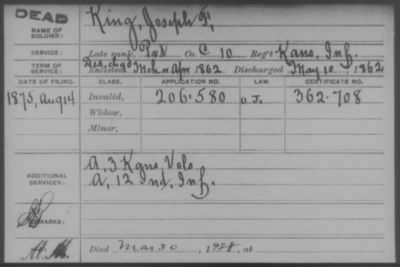 DEAD
NAME OF SOLDIER: King, Joseph F.
SERVICE: Late rank, Pvt Co. C 10 Reg't Kans. Inf.
TERM OF SERVICE: Enlisted Mch or Apr 1862 Discharged May 10, 1862
DATE OF FILING. CLASS. APPLICATION NO. CERTIFICATE NO.
1875, Aug 14 Invalid, 206.580 362.708
Widow,
Minor,
ADDITIONAL SERVICES: A, 3 Kans. Vols.
A, 12 Ind. Inf.
REMARKS:
Died Mar 30, 1928, at